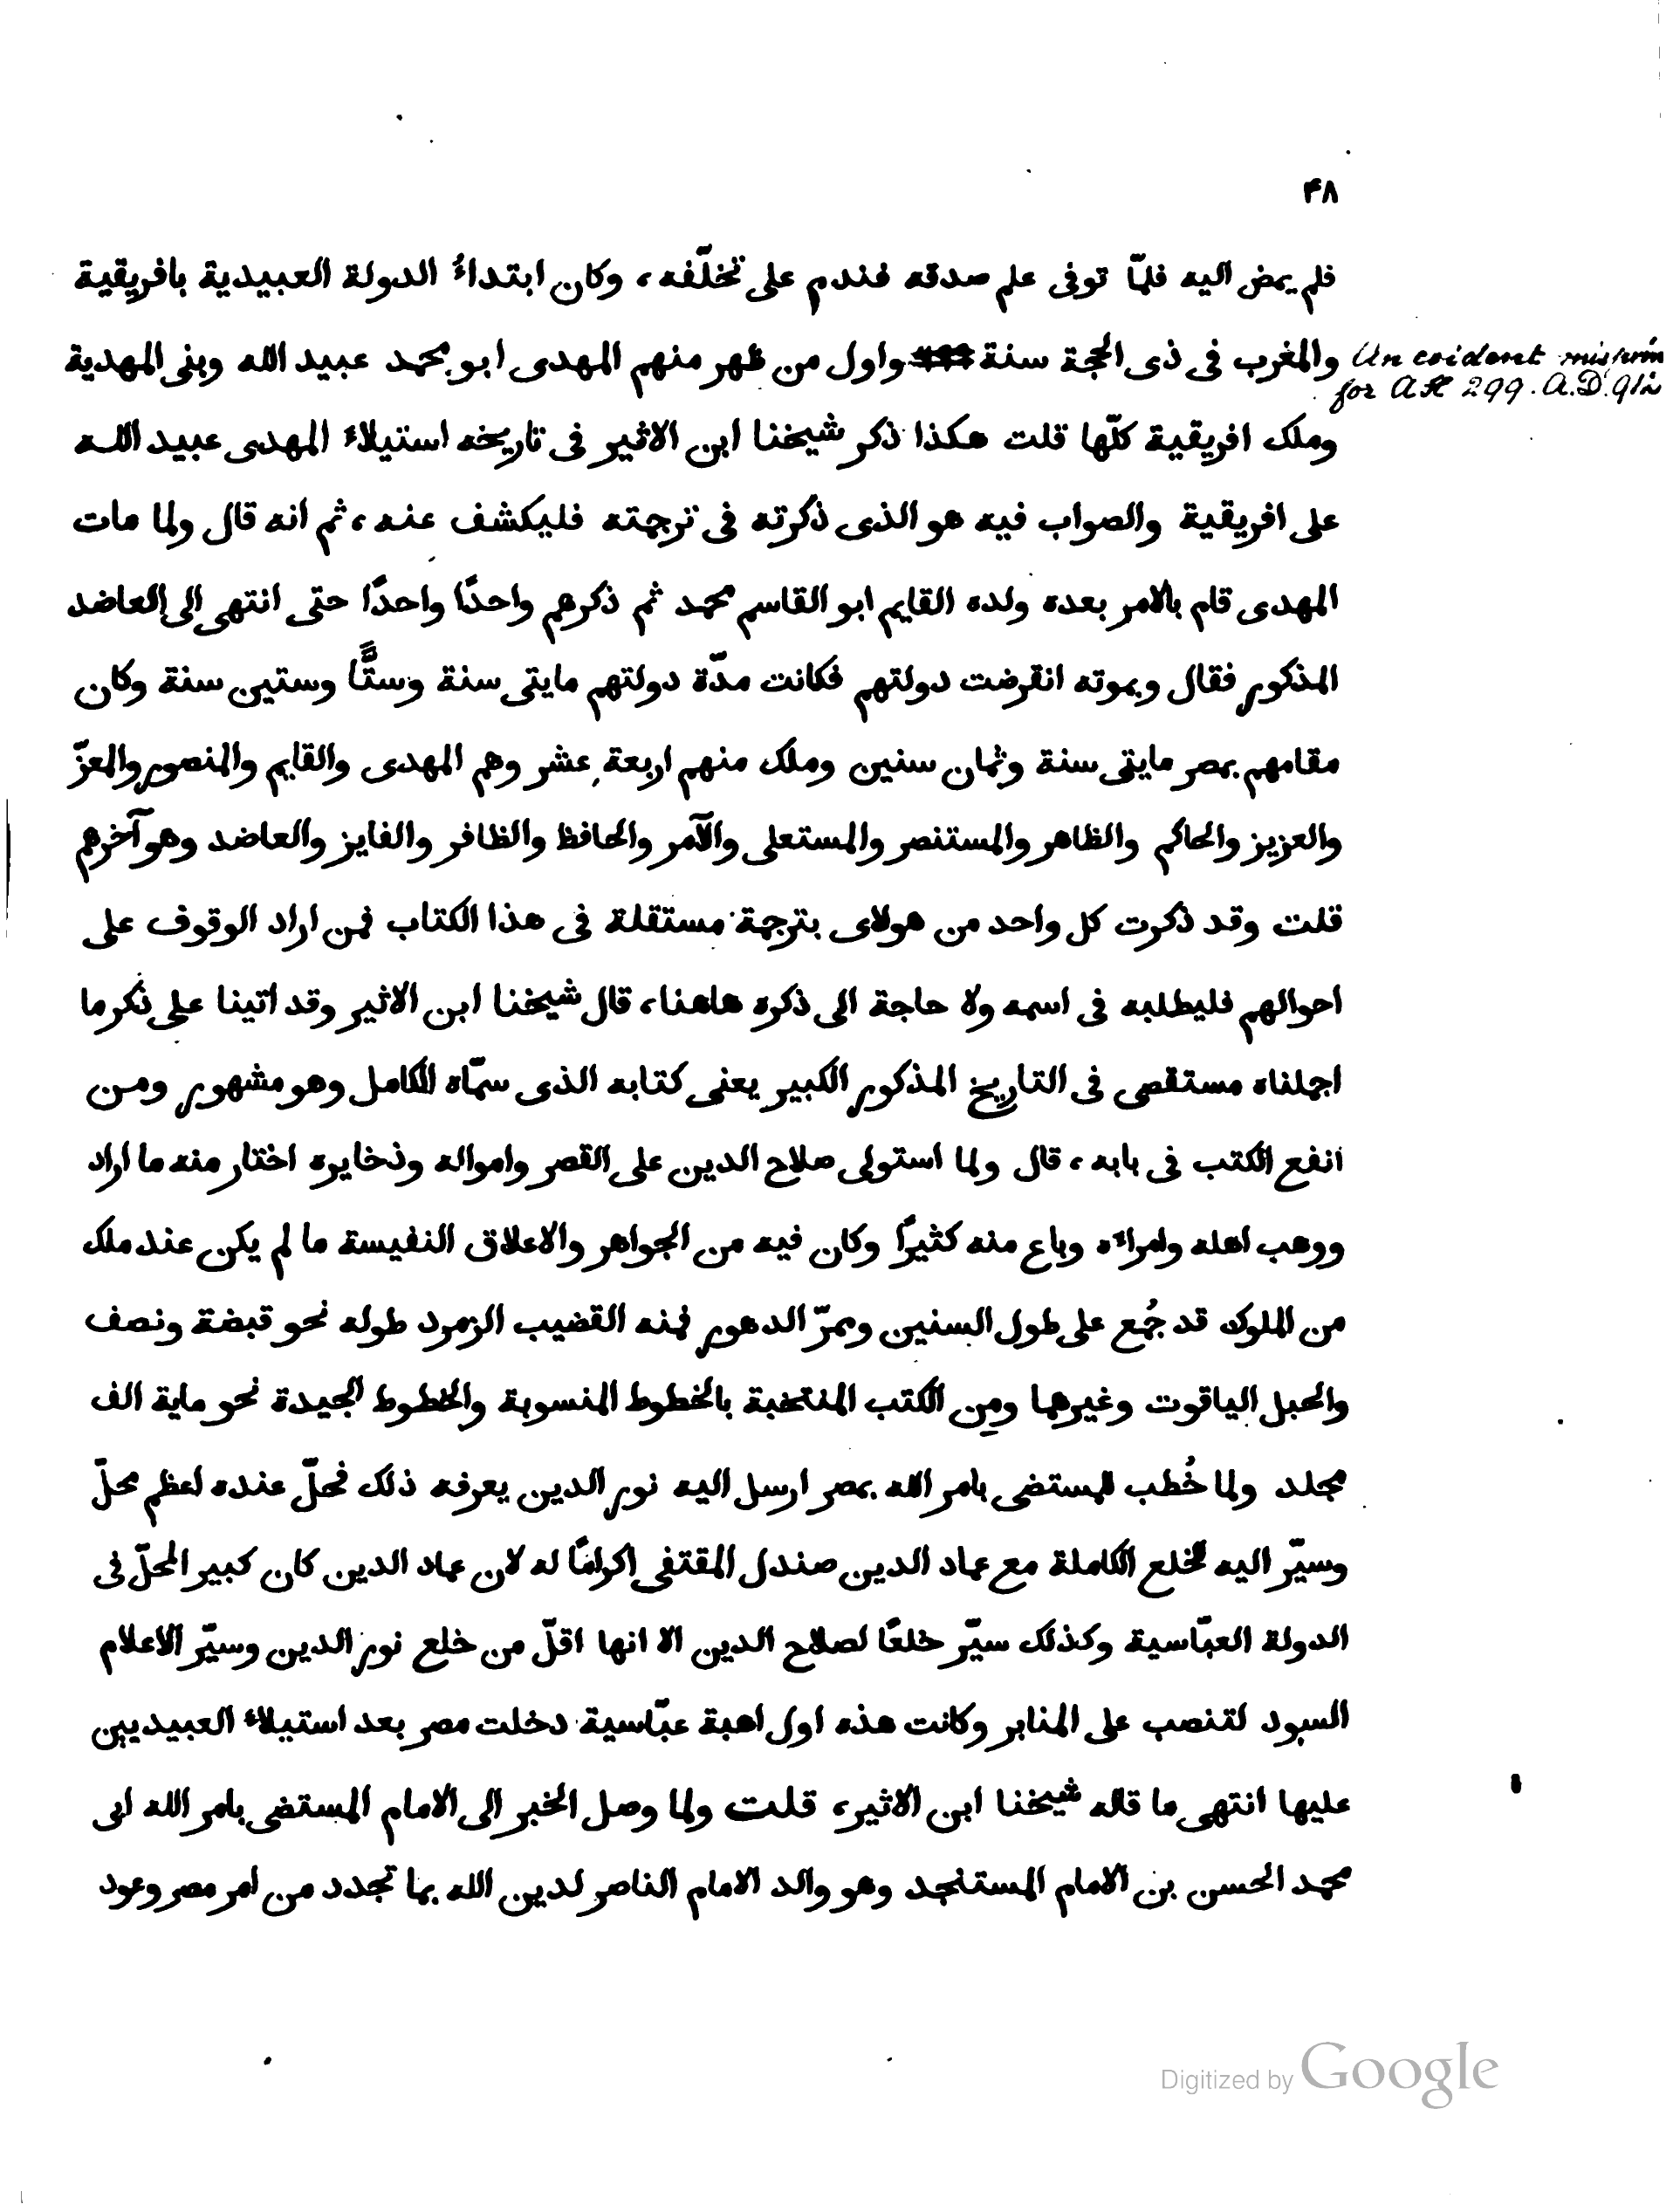 ۴۸
فلم يمض اليه فلمّا توفى علم صدقه فندم على تخلّفه، وكان ابتداءُ الدولة العبيدية بافريقية
والمغرب فى ذى الحجة سنة واول من ظهر منهم المهدى ابو محمد عبيد الله وبنى المهدية
An evident misprint
for AH 299. A.D. 912
وملك افريقية كلّها قلت هكذا ذكر شيخنا ابن الاثير فى تاريخه استيلاء المهدى عبيد الله
على افريقية والصواب فيه هو الذى ذكرته فى ترجمته فليكشف عنه، ثم انه قال ولما مات
المهدى قام بالامر بعده ولده القايم ابو القاسم محمد ثم ذكرهم واحدًا واحدًا حتى انتهى الى العاضد
المذكور فقال وبموته انقرضت دولتهم فكانت مدّة دولتهم مايتى سنة وستًّا وستين سنة وكان
مقامهم بمصر مايتى سنة وثمان سنين وملك منهم اربعة عشر وهم المهدى والقايم والمنصور والمعزّ
والعزيز والحاكم والظاهر والمستنصر والمستعلى والآمر والحافظ والظافر والفايز والعاضد وهو آخرهم
قلت وقد ذكرت كل واحد من هولاى بترجمة مستقلة فى هذا الكتاب فمن اراد الوقوف على
احوالهم فليطلبه فى اسمه ولا حاجة الى ذكره هاهنا، قال شيخنا ابن الاثير وقد اتينا على ذكر ما
اجملناه مستقصى فى التاريخ المذكور الكبير يعنى كتابه الذى سمّاه الكامل وهو مشهور ومن
انفع الكتب فى بابه، قال ولما استولى صلاح الدين على القصر وامواله وذخايره اختار منه ما اراد
ووهب اهله وامراءه وباع منه كثيرًا وكان فيه من الجواهر والاعلاق النفيسة ما لم يكن عند ملك
من الملوك قد جُمع على طول السنين وممرّ الدهور فمنه القضيب الزمرد طوله نحو قبضة ونصف
والحبل الياقوت وغيرهما ومن الكتب المنتخبة بالخطوط المنسوبة والخطوط الجيدة نحو ماية الف
مجلد ولما خُطب للمستضى بامر الله بمصر ارسل اليه نور الدين يعرفه ذلك فحلّ عنده اعظم محلّ
وسيّر اليه الخلع الكاملة مع عماد الدين صندل المقتفى اكرامًا له لان عماد الدين كان كبير المحلّ فى
الدولة العبّاسية وكذلك سيّر خلعًا لصلاح الدين الا انها اقلّ من خلع نور الدين وسيّر الاعلام
السود لتنصب على المنابر وكانت هذه اول اهبة عبّاسية دخلت مصر بعد استيلاء العبيديين
عليها انتهى ما قاله شيخنا ابن الاثير، قلت ولما وصل الخبر الى الامام المستضى بامر الله ابى
محمد الحسن بن الامام المستنجد وهو والد الامام الناصر لدين الله بما تجدد من امر مصر وعود
Digitized by Google